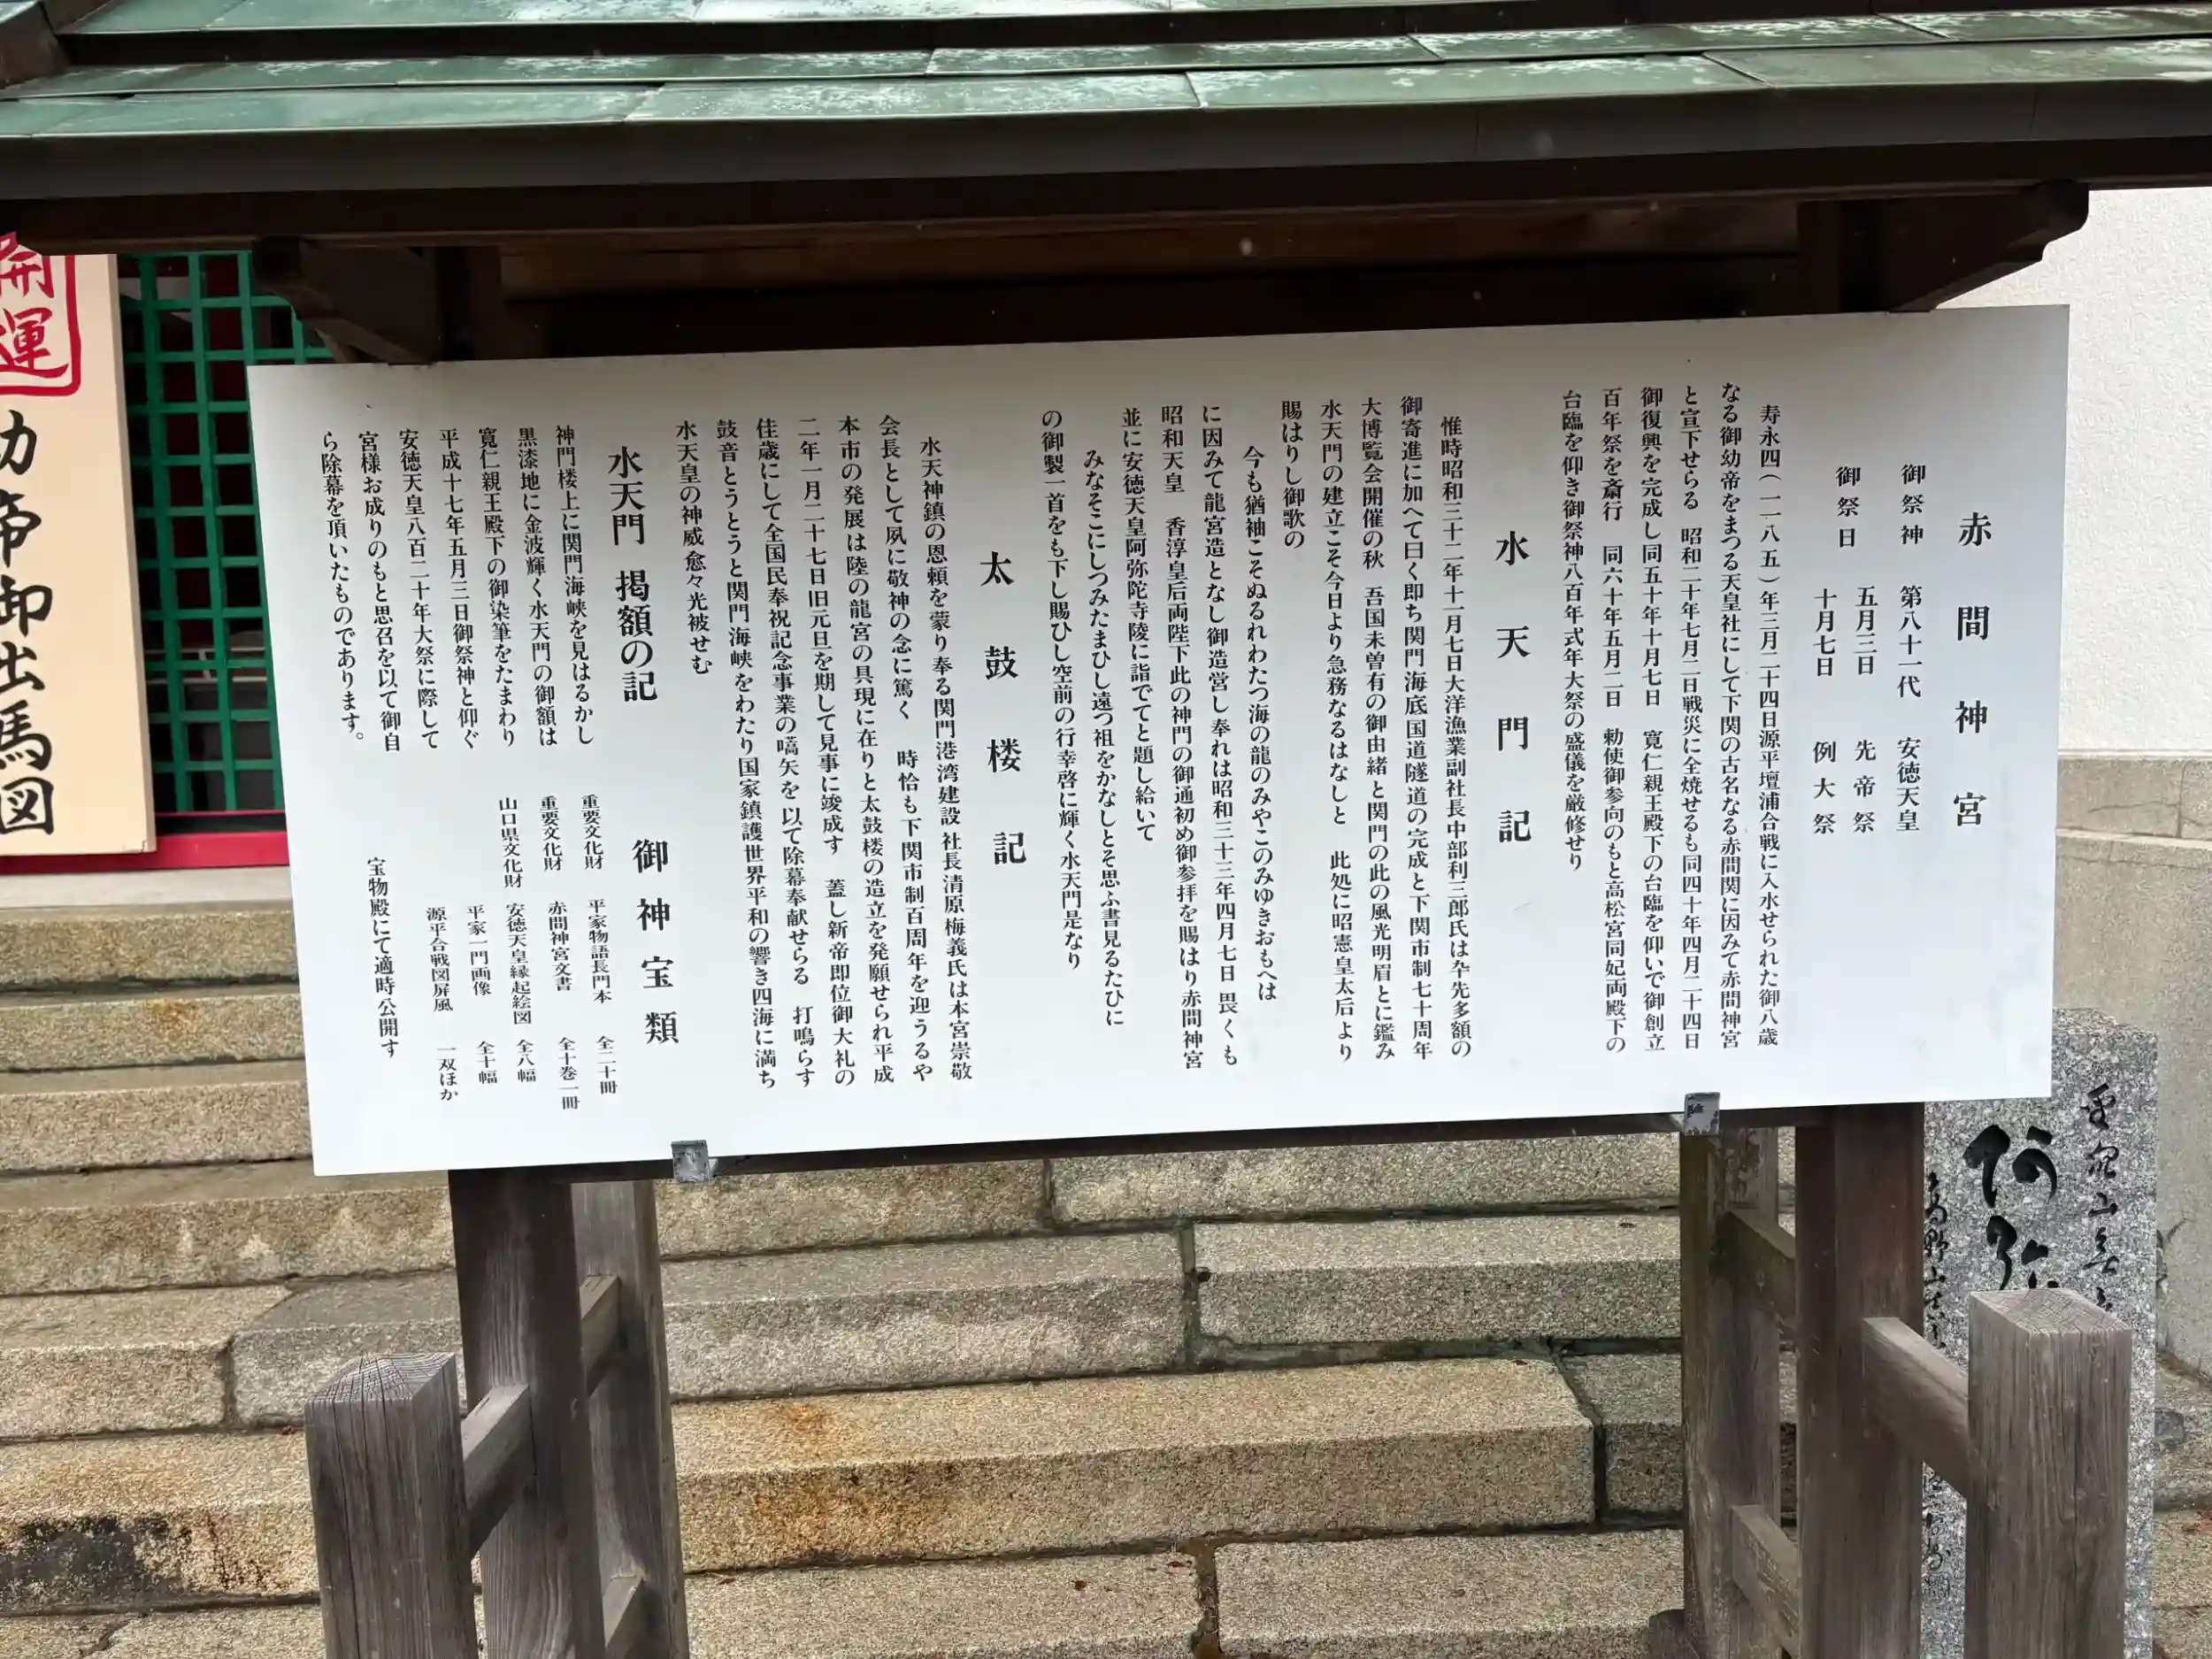 赤間神宮
御祭神 第八十一代 安徳天皇
御祭日 五月三日 先帝祭
十月七日 例大祭
寿永四(一一八五)年三月二十四日源平壇浦合戦に入水せられた御八歳
なる御幼帝をまつる天皇社にして下関の古名なる赤間関に因みて赤間神宮
と宣下せらる 昭和二十年七月二日戦災に全焼せるも同四十年四月二十四日
御復興を完成し同五十年十月七日 寛仁親王殿下の台臨を仰いで御創立
百年祭を斎行 同六十年五月二日 勅使御参向のもと高松宮同妃両殿下の
台臨を仰き御祭神八百年式年大祭の盛儀を厳修せり
水天門記
惟時昭和三十二年十一月七日大洋漁業副社長中部利三郎氏は卆先多額の
御寄進に加へて曰く即ち関門海底国道隧道の完成と下関市制七十周年
大博覧会開催の秋 吾国未曽有の御由緒と関門の此の風光明眉とに鑑み
水天門の建立こそ今日より急務なるはなしと 此処に昭憲皇太后より
賜はりし御歌の
今も猶袖こそぬるれわたつ海の龍のみやこのみゆきおもへは
に因みて龍宮造となし御造営し奉れは昭和三十三年四月七日 畏くも
昭和天皇 香淳皇后両陛下此の神門の御通初め御参拝を賜はり赤間神宮
並に安徳天皇阿弥陀寺陵に詣でてと題し給いて
みなそこにしつみたまひし遠つ祖をかなしとそ思ふ書見るたひに
の御製一首をも下し賜ひし空前の行幸啓に輝く水天門是なり
太鼓楼記
水天神鎮の恩頼を蒙り奉る関門港湾建設 社長清原梅義氏は本宮崇敬
会長として夙に敬神の念に篤く 時恰も下関市制百周年を迎うるや
本市の発展は陸の龍宮の具現に在りと太鼓楼の造立を発願せられ平成
二年一月二十七日旧元旦を期して見事に竣成す 蓋し新帝即位御大礼の
佳歳にして全国民奉祝記念事業の嚆矢を以て除幕奉献せらる 打鳴らす
鼓音とうとうと関門海峡をわたり国家鎮護世界平和の響き四海に満ち
水天皇の神威愈々光被せむ
水天門 掲額の記
神門楼上に関門海峡を見はるかし
黒漆地に金波輝く水天門の御額は
寛仁親王殿下の御染筆をたまわり
平成十七年五月三日御祭神と仰ぐ
安徳天皇八百二十年大祭に際して
宮様お成りのもと思召を以て御自
ら除幕を頂いたものであります。
御神宝類
重要文化財 平家物語長門本 全二十冊
重要文化財 赤間神宮文書 全十巻一冊
山口県文化財 安徳天皇縁起絵図 全八幅
平家一門画像 全十幅
源平合戦図屏風 一双ほか
宝物殿にて適時公開す
開運
幼帝御出馬図
阿弥